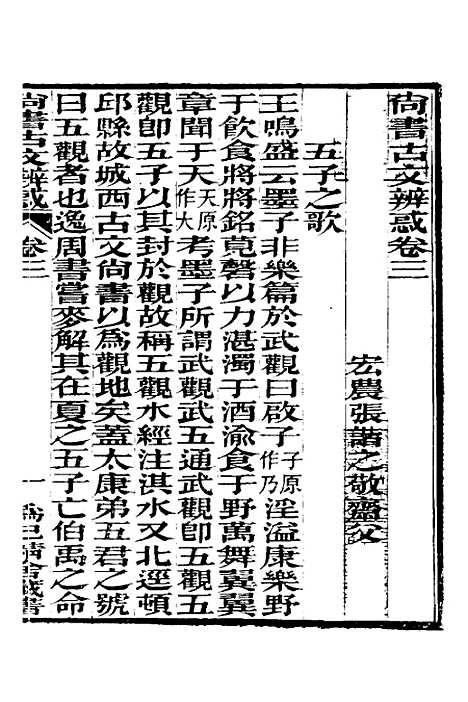 尚書古文辨惑卷三
宏農張諧之敬齋父
五子之歌
王鳴盛云墨子非樂篇於武觀曰啟子子原作乃淫溢康樂野
于飲食將將銘莧磬以力湛濁于酒渝食于野萬舞翼翼
章聞于天天原作大考墨子所謂武觀武五通武觀卽五觀五
觀卽五子以其封於觀故稱五觀水經注淇水又北逕頓
邱縣故城西古文尚書以爲觀地矣蓋太康弟五君之號
曰五觀者也逸周書嘗麥解其在夏之五子亡伯禹之命
尚書古文辨惑 卷三 一 爲己精舍藏書